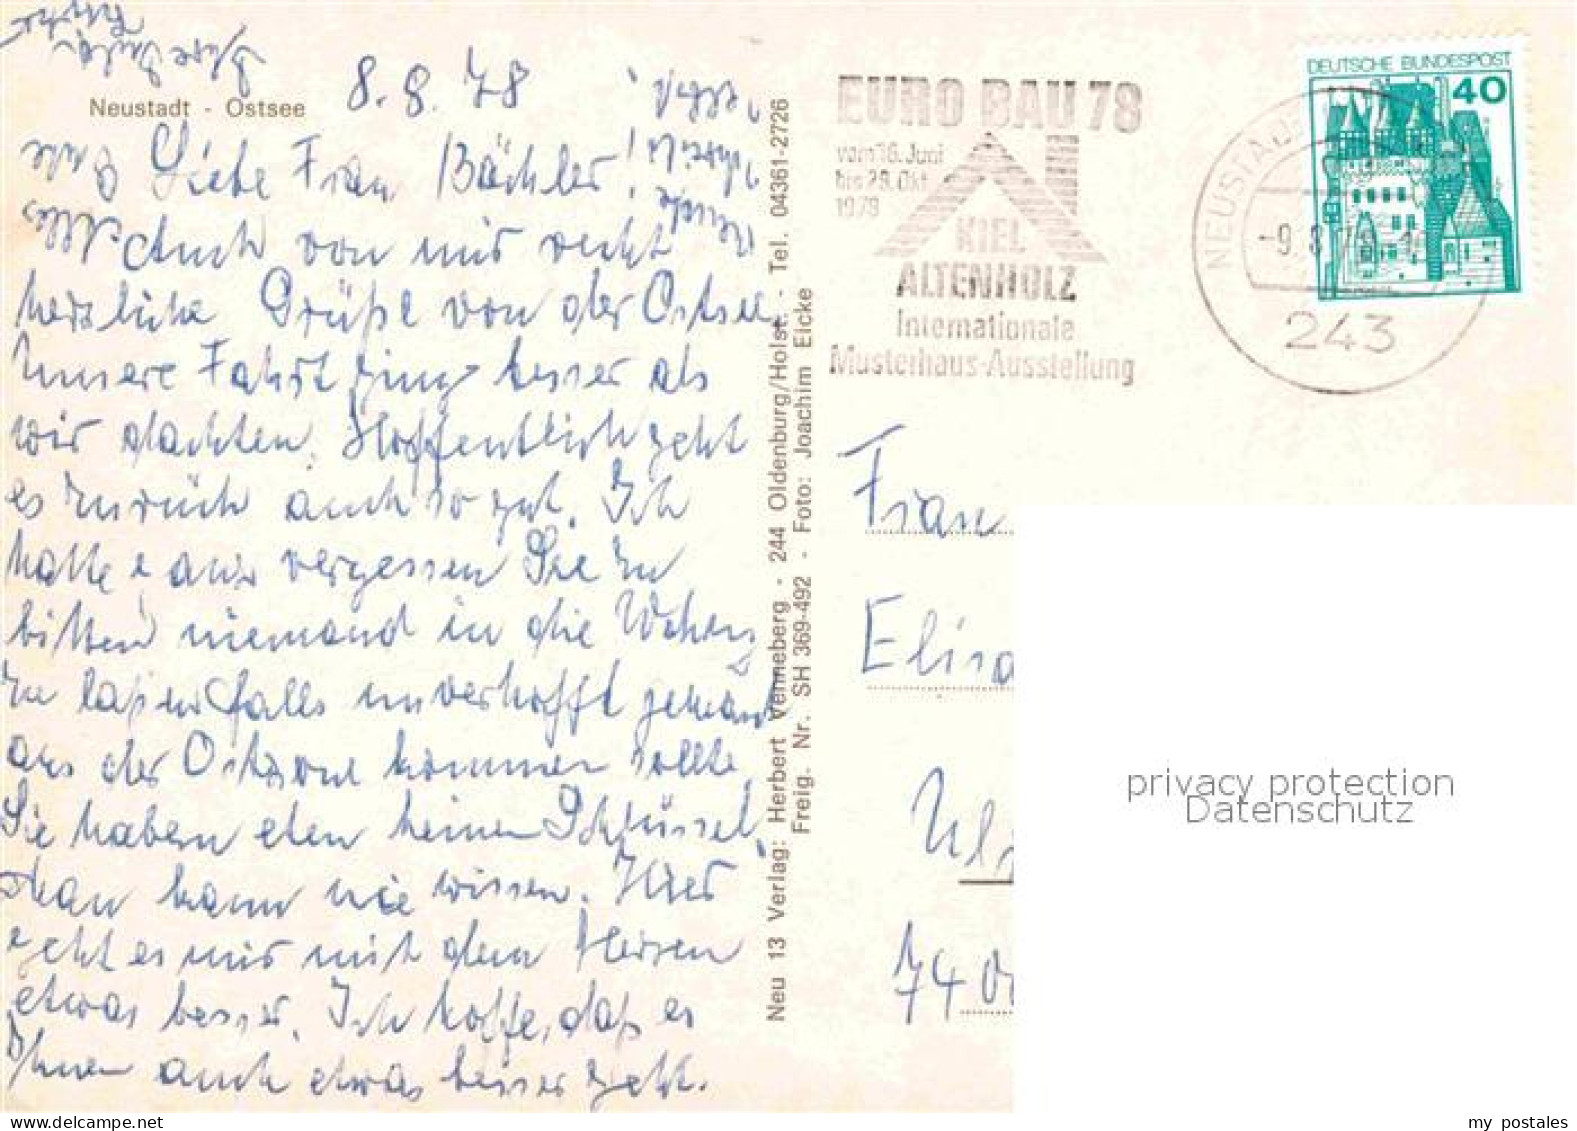 Neustadt - Ostsee
8. 8. 78
Liebe Frau Bächler!
Auch von mir recht
herzliche Grüße von der Ostsee.
Unsere Fahrt ging besser als
wir dachten. Hoffentlich geht
es zurück auch so gut. Ich
hatte vergessen Sie zu
bitten niemand in die Wohng
zu laßen falls unverhofft jemand
aus der Ostzone kommen sollte.
Sie haben eben keinen Schlüssel.
Man kann nie wissen. Hier
geht es mir mit dem Herzen
etwas besser. Ich hoffe, daß es
Ihnen auch etwas besser geht.
Alles
Gute
Ihre
Neu 13 Verlag: Herbert Venneberg - 244 Oldenburg/Holst. - Tel. 04361-2726
Freig. Nr. SH 369-492 - Foto: Joachim Eicke
EURO BAU 78
vom 16. Juni
bis 29. Okt.
1978
KIEL
ALTENHOLZ
Internationale
Musterhaus-Ausstellung
NEUSTADT
-9.8.78
243
DEUTSCHE BUNDESPOST
40
Frau
Elisa
Ul
740
privacy protection
Datenschutz
my postales